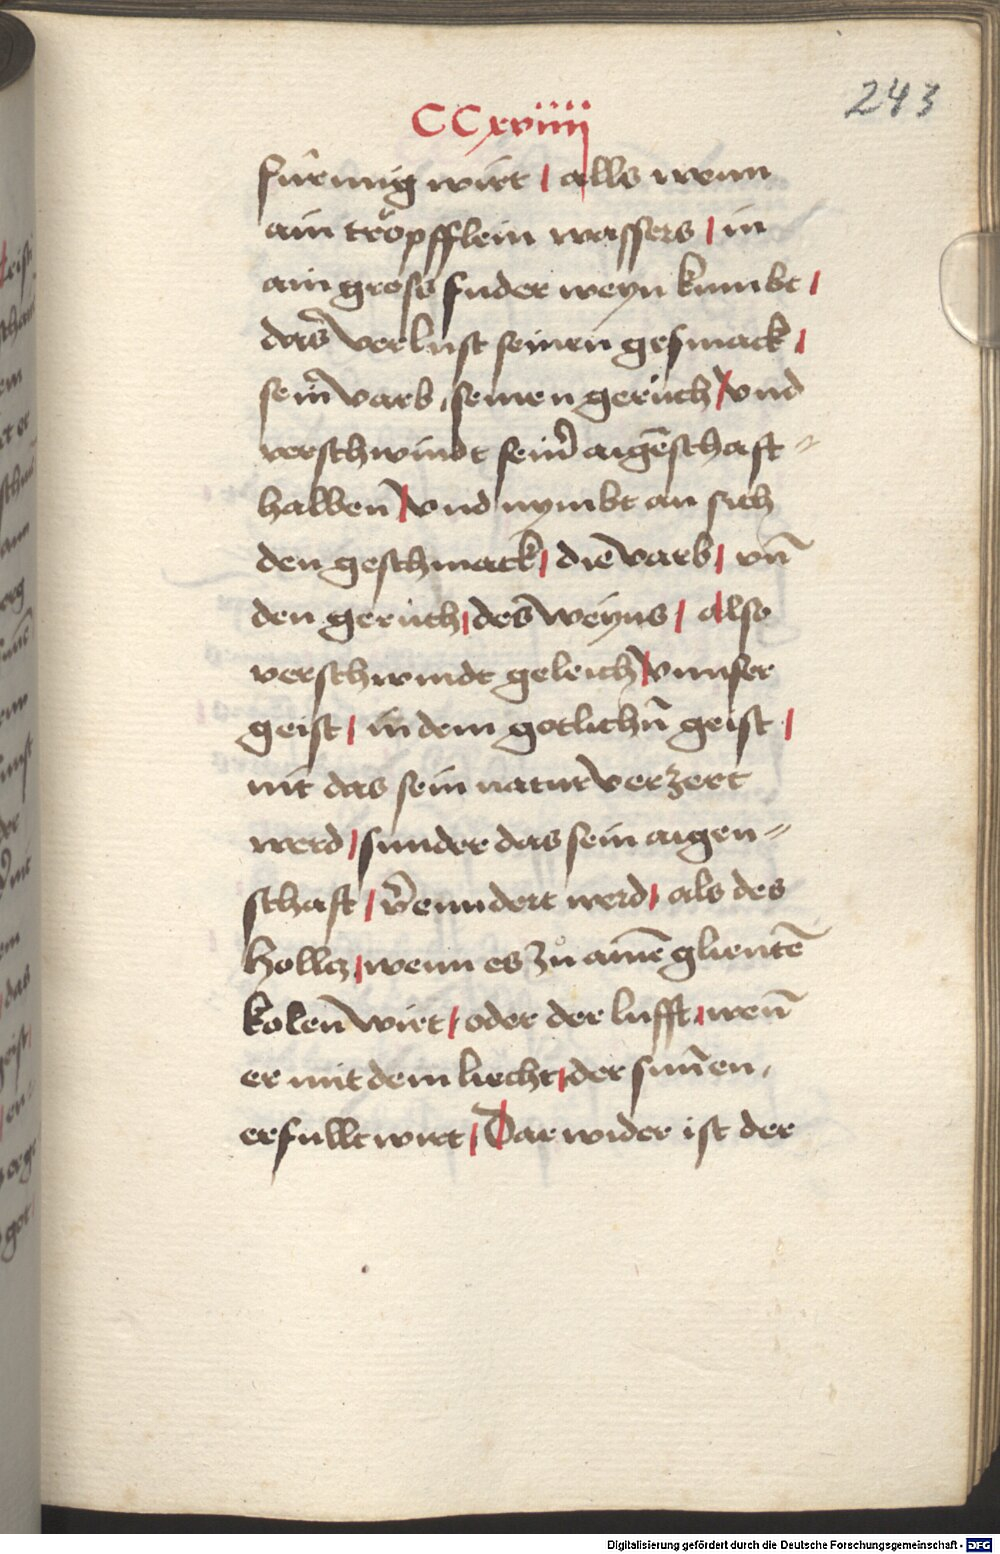 243
CCxviiii
fûrmig wirt / alls wenn
ain trőpfflein wassers / in
ain gross fuder weyn kumbt /
das verlust seinen gesmack /
sein̄ varb, seinen geruch / vnd
verschwindt sein̄ aigēschaft =
halben̄ / vnd nymbt an sich
den geschmack / die varb / vn̄
den geruch / des weyns / also
verschwindt geleich / vnnser
geist / in dem gotlichn̄ geist /
nit das sein natur verzert
werd / sunder das sein aigen =
schaft / v̄enndert werd / als des
hollcz / wenn es zů ainē glientē
kolen̄ wirt / oder der lufft / wen̄
er mit dem liecht / der sun̄en,
erfullt wirt / Dar wider ist der
Digitalisierung gefördert durch die Deutsche Forschungsgemeinschaft - DFG